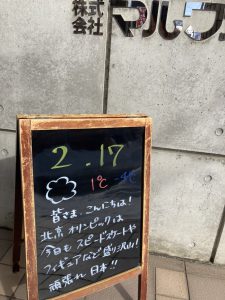 株式
会社 マルワ
2.17
1℃ -4℃
皆さま、こんにちは!
北京オリンピックは
今日もスピードスケートや
フィギュアなど盛り沢山!
頑張れ日本!!